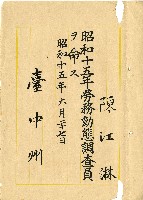 陳江淋
昭和十五年勞務動態調査員
ヲ命ス
昭和十五年六月廿七日
臺中州